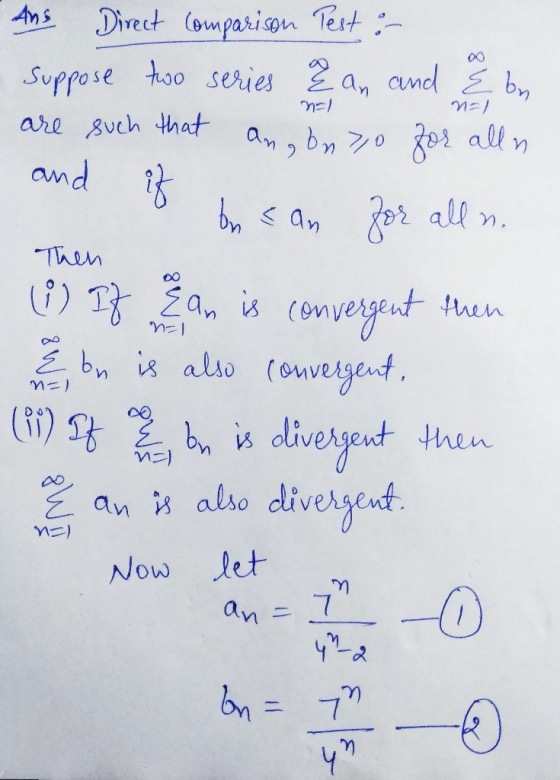 Ans Direct Comparison Test :-
Suppose two series ∞Σn=1 an and ∞Σn=1 bn
are such that an, bn ≥ 0 for all n
and if
bn ≤ an for all n.
Then
(i) If ∞Σn=1 an is convergent then
∞Σn=1 bn is also convergent.
(ii) If ∞Σn=1 bn is divergent then
∞Σn=1 an is also divergent.
Now let
an = 7^n / (4^n-2) — ①
bn = 7^n / 4^n — ②